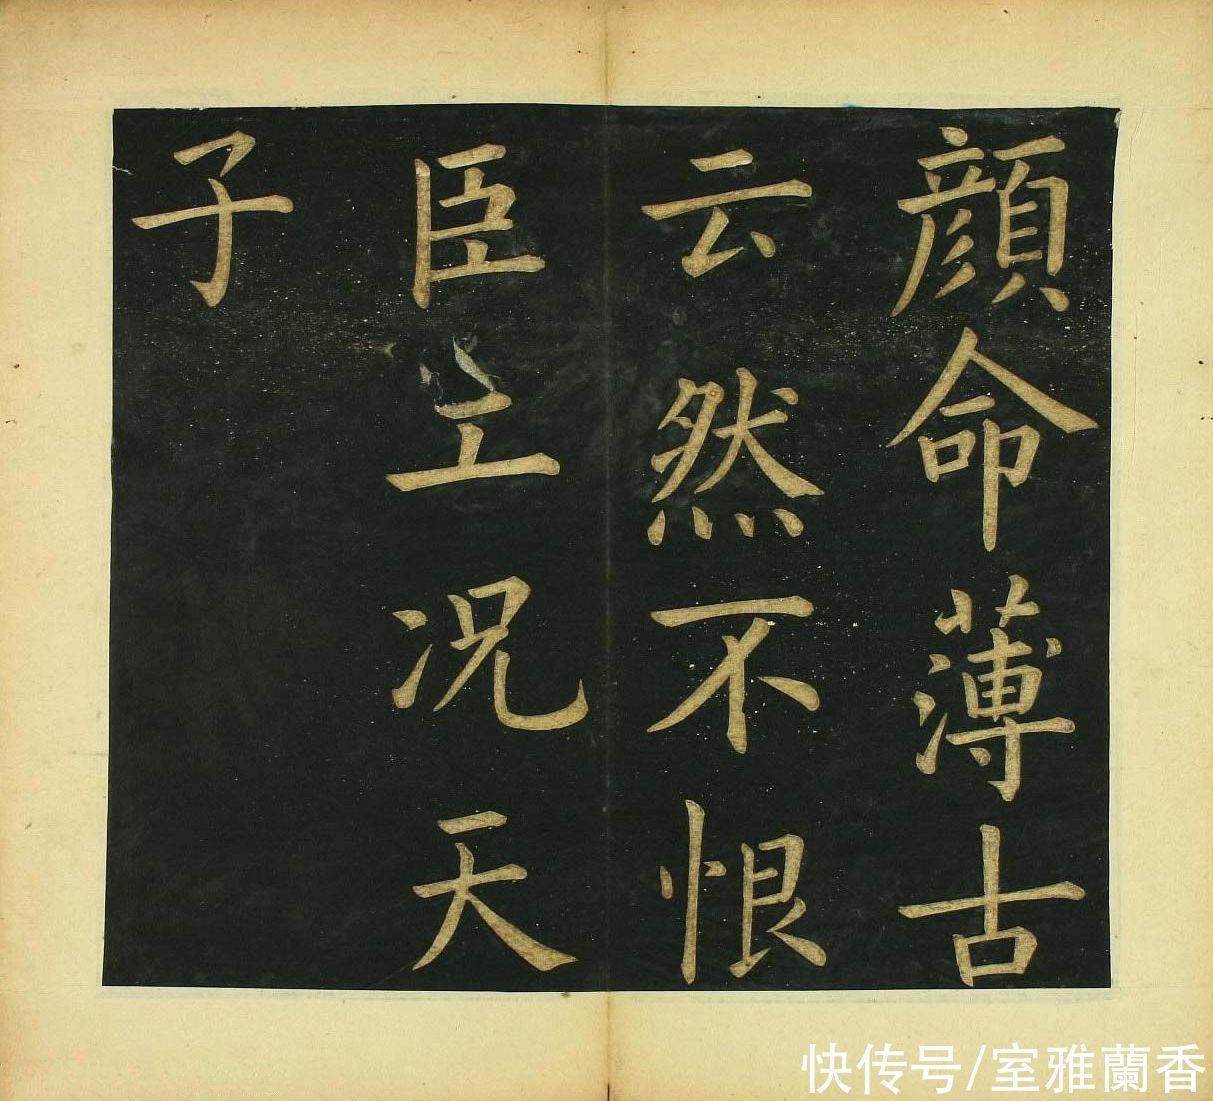 顔命薄古
云然不恨
臣工况天
子
快传号/室雅蘭香